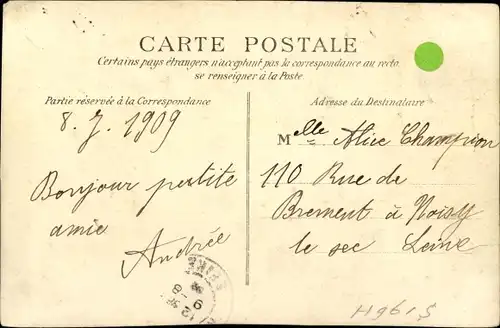 CARTE POSTALE
Certains pays étrangers n'acceptant pas la correspondance au recto
se renseigner à la Poste.
Partie réservée à la Correspondance
Adresse du Destinataire
8. 7. 1909
Bonjour petite
amie
Andrée
Melle Alice Champion
110 Rue de
Brement à Noisy
le sec Seine
H961,5